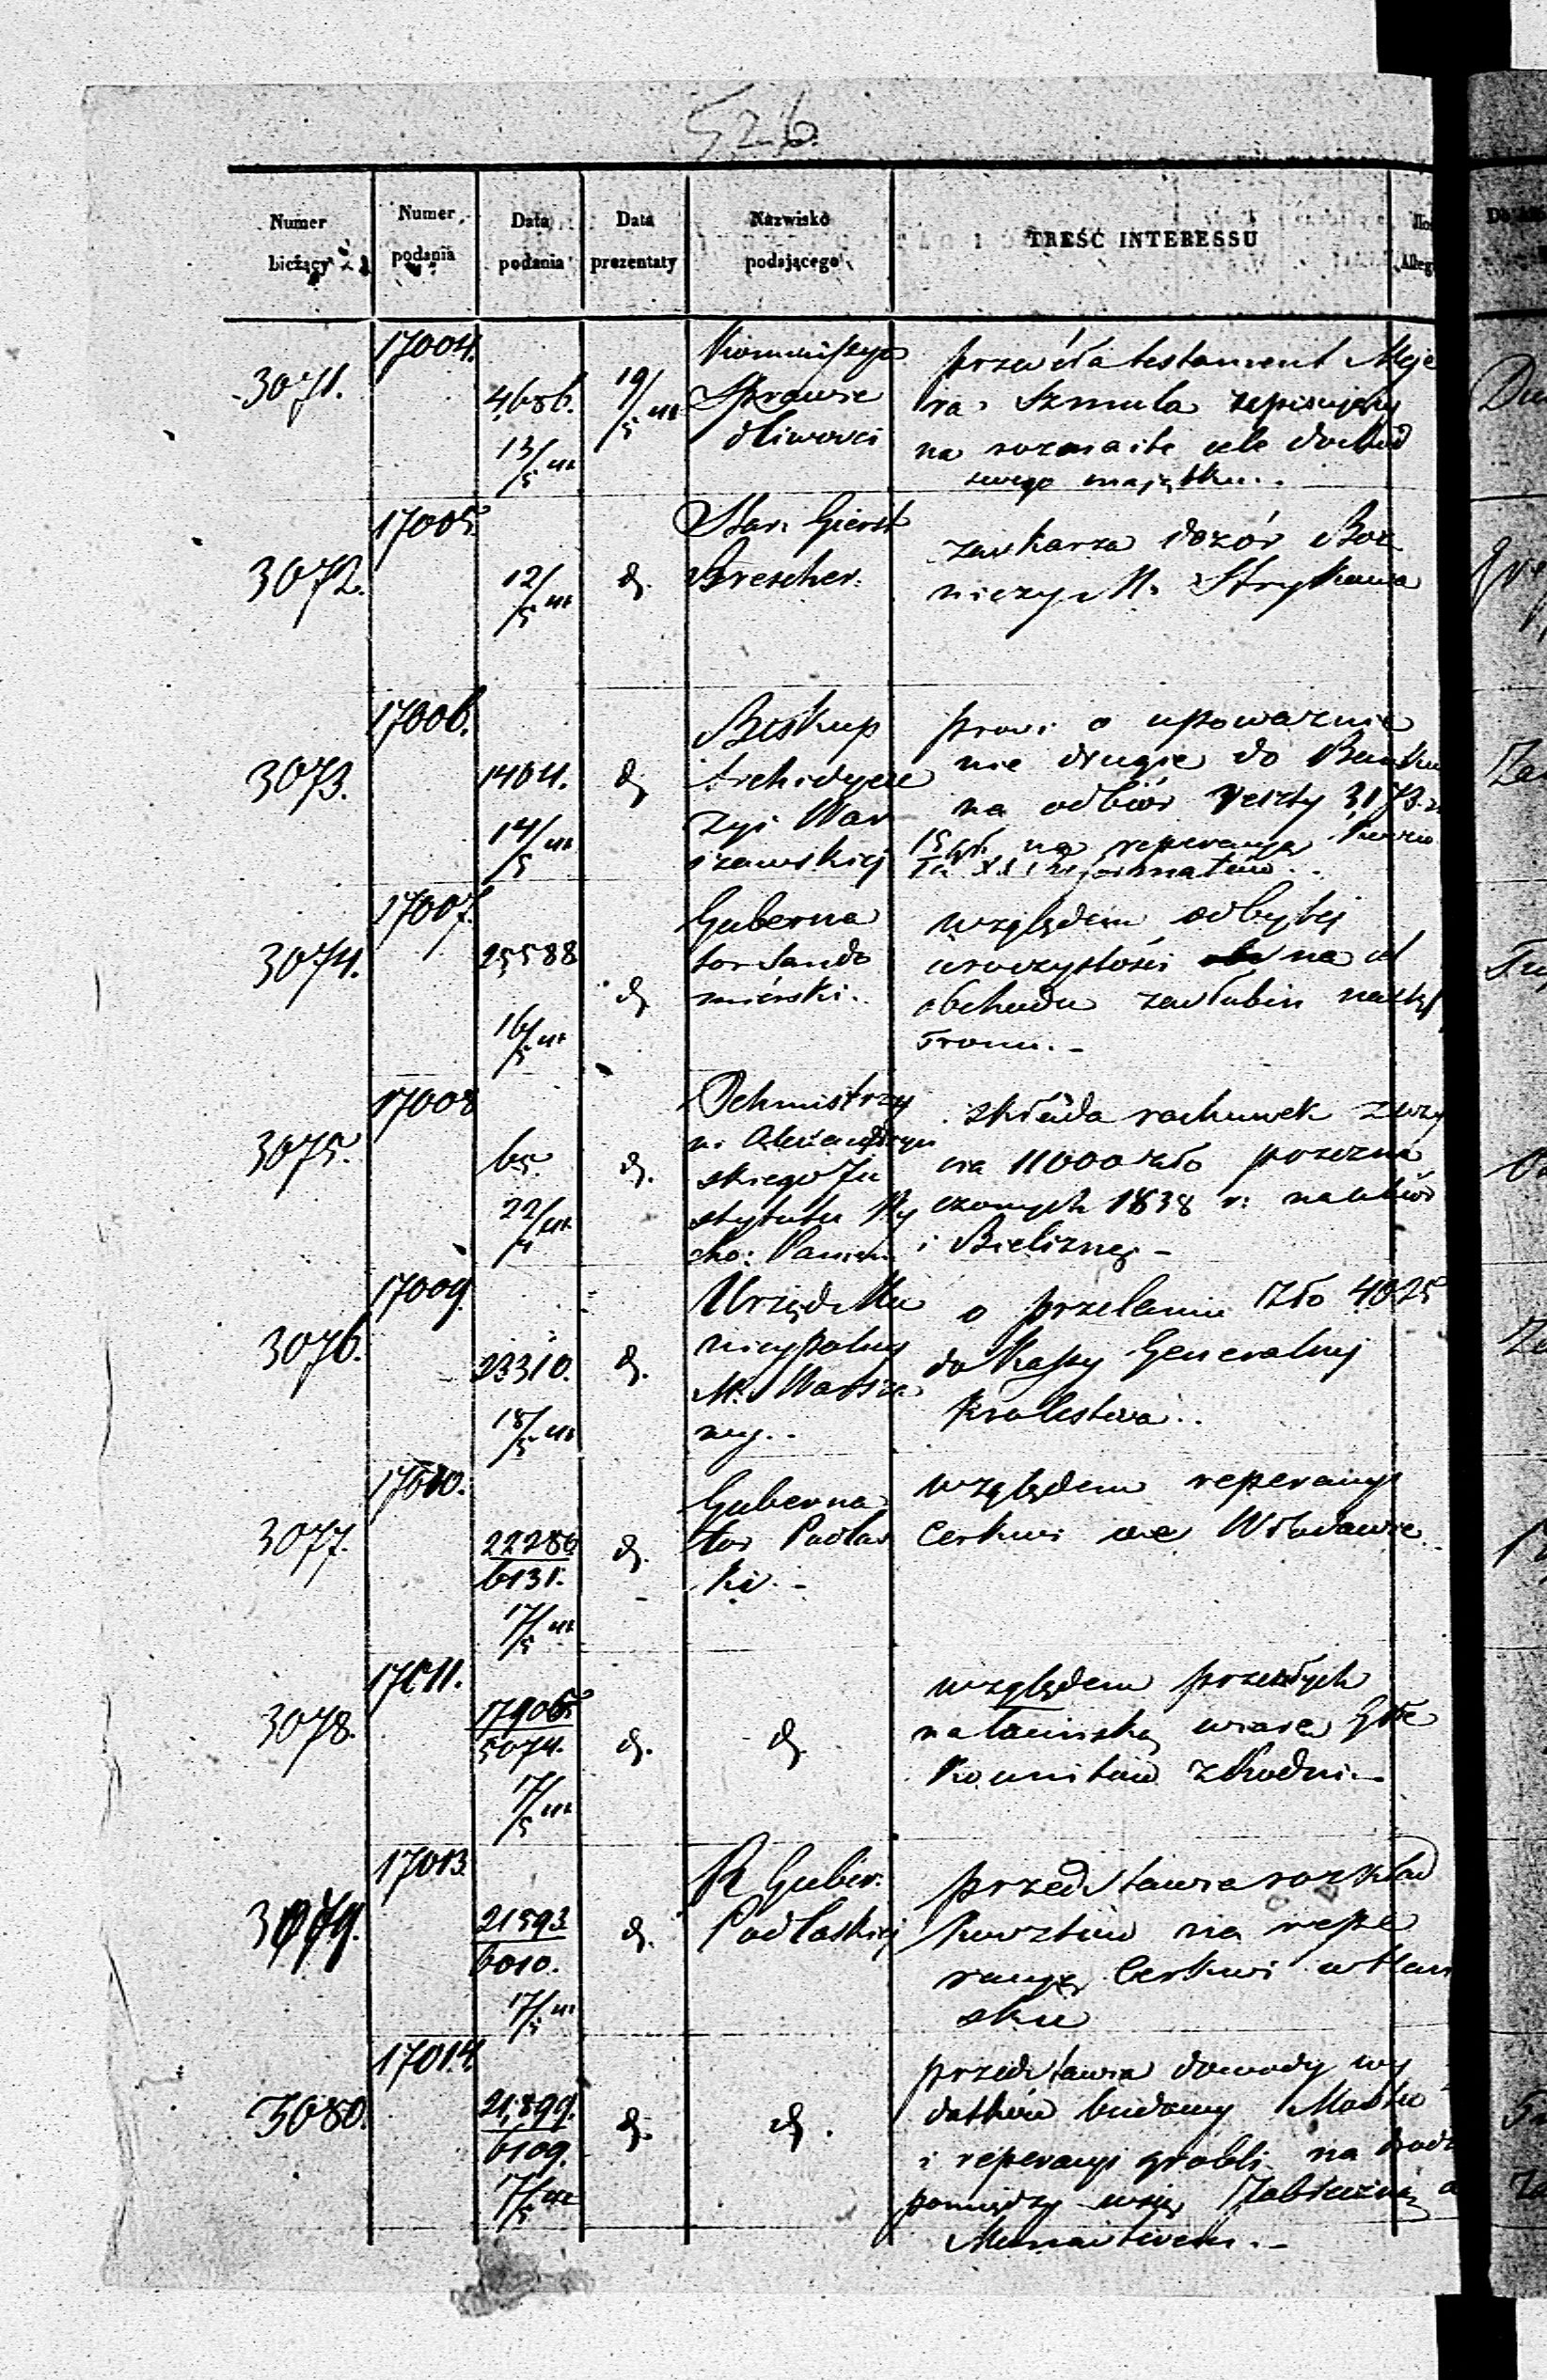 526.
Numer bieżący
Numer podania
Data podania
Data prezentaty
Nazwisko podającego
TREŚĆ INTERESSU
Alleg
3071.
17004.
4686.
13/5 41
19/5 41
Kommissya
Sprawie
dliwości
przesyła testament Meje
ra Szmula zapisujący
na rozmaite cele dochod
swego majątku..
3072.
17005.
12/5 41
d.
Star: Gierst
Brescher.
zaskarza dozór Boż
niczy M. Strykowa
3073.
17006.
1464.
14/5 41
d.
Biskup
Archidyece
zyi War
szawskiej
prosi o upoważnie
nie drugie do Banku
na odbiór reszty 3173
15 gr. na reperacyą
XX Reformatów..
3074.
17007.
25588
16/5 41
d.
Guberna
tor Sando
mierski.
względem odbytej
uroczystości na
obchodu zaślubin
Tronu.-
3075.
17008
65.
22/4 41
d.
Ochmistrzy
ni Alexandryn
skiego In
stytutu Wy
cho: Panien
składa rachunek z uży
cia 11000 zło przezna
czonych 1838 r: na ubiór
i Bieliznę.-
3076.
17009.
23310.
18/5 41
d.
Urząd Mu
nicypalny
M. Warsza
wy..
o przelaniu Zło 4025
do Kassy Generalnej
Krolestwa..
3077.
17010.
22286
6131.
17/5 41
d.
Guberna
tor Podlas
ki.-
względem reperacyi
Cerkwi we Włodawie.
3078.
17011.
17906
5074.
17/5 41
d.
d.
względem przeszłych
na łacińską wiarę Gre
ko unitów z Kodni.-
3079.
17013.
21593
6010.
17/5 41
d.
R Guber:
Podlaskiej
przedstawia rozkład
kosztów na repe
racyę Cerkwi w Han
sku
3080.
17014.
21,899.
6109.
17/5 41
d.
d.
przedstawia dowody wy
datków budowy Mostu
i reperacyi grobli na
pomiędzy wsią